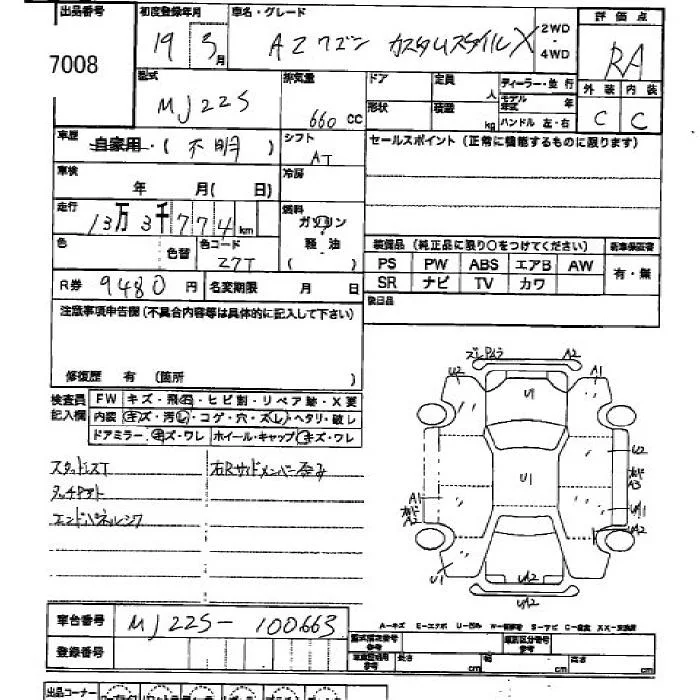 出品番号 初度登録年月 車名・グレード 評価点
7008 19 3月 AZワゴン カスタムスタイルX 2WD・4WD RA
型式 排気量 ドア 定員 人 ディーラー・並行 外装 内装
MJ22S 660 cc 形状 積載 kg モデル年式 年 ハンドル 左・右 C C
車歴 自家用・(不明) シフト AT セールスポイント(正常に機能するものに限ります)
車検 年 月(日) 冷房
走行 13万3千774km 燃料 ガソリン
色 色替 色コード Z7T 軽油 ( ) 装備品(純正品に限り○をつけてください) 新車保証書
PS PW ABS エアB AW 有・無
R券 9480円 名変期限 月 日 SR ナビ TV カワ
注意事項申告欄(不具合内容等は具体的に記入して下さい) 後日品
修復歴 有(箇所 )
検査員記入欄 FW キズ・飛石・ヒビ割・リペア跡・X要
内装 キズ・汚レ・コゲ・穴・スレ・ヘタリ・破レ
ドアミラー キズ・ワレ ホイール・キャップ キズ・ワレ
スタッドレスT 右Rサイドメンバー歪み
タッチアト
エンドパネルシワ
ズレ A2
U2 U1 A1
U1 U2
A1 A2 A3
U1 UA2 UA2
車台番号 MJ22S-100663
登録番号
A-キズ E-エクボ U-凹み S-サビ C-腐食
型式指定番号 参考 類別区分番号 参考
長さ cm 幅 cm 高さ cm
出品コーナー